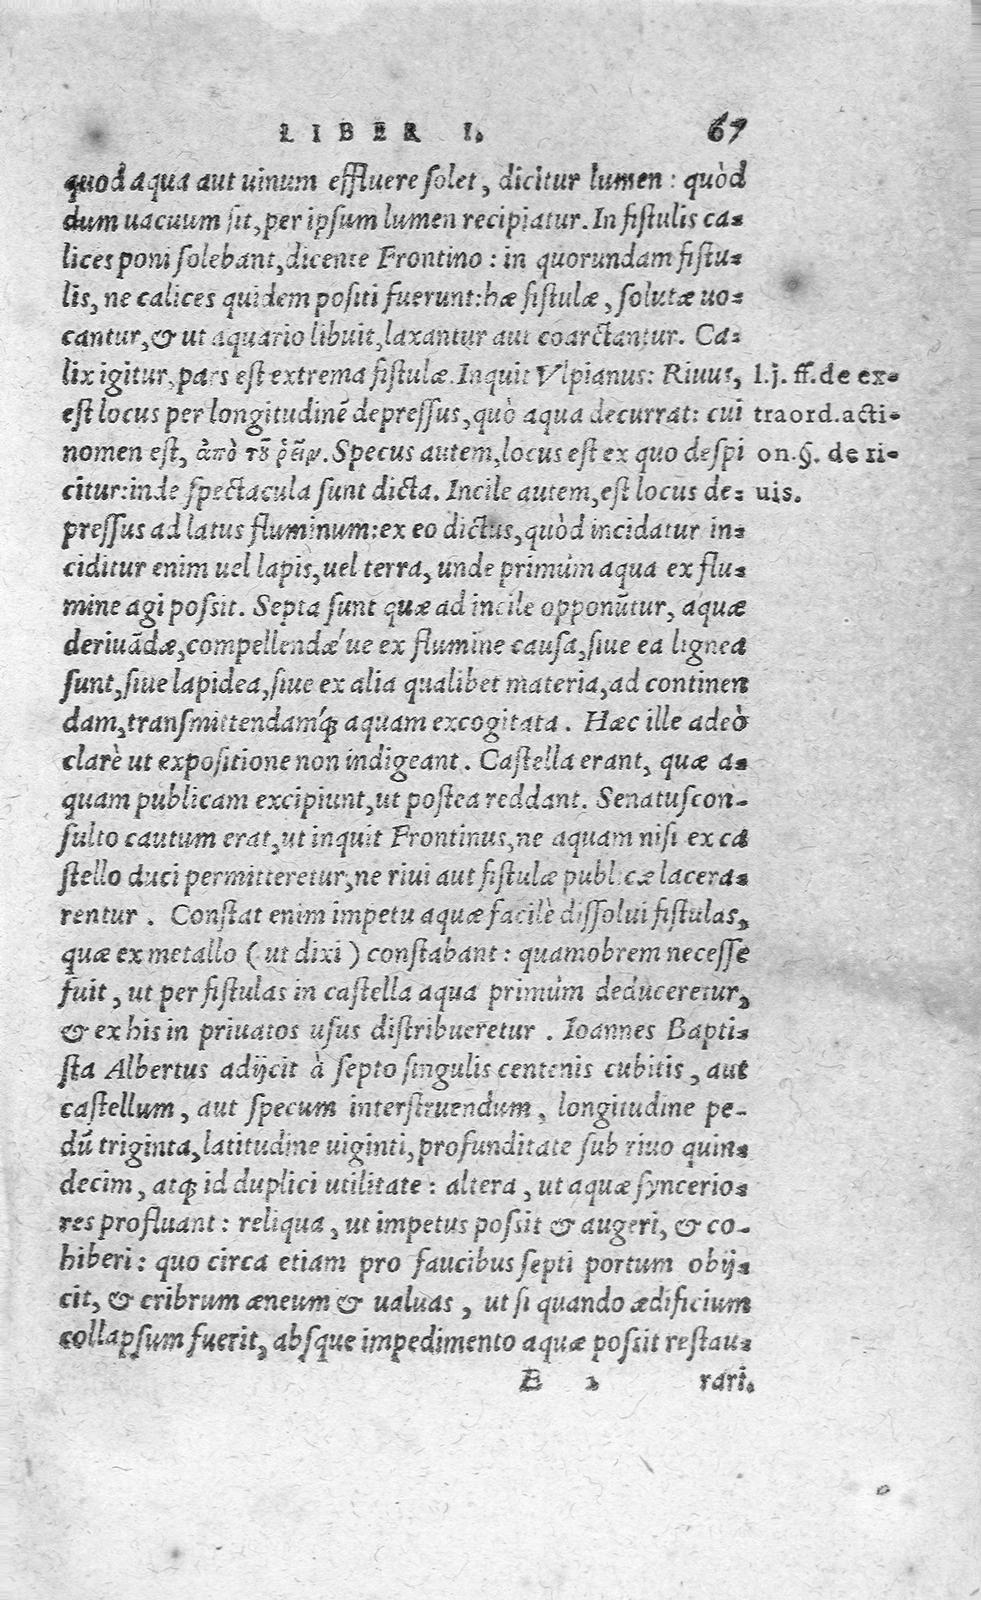 LIBER I. 67
quod aqua aut uinum effluere solet, dicitur lumen: quòd
dum uacuum sit, per ipsum lumen recipiatur. In fistulis ca-
lices poni solebant, dicente Frontino: in quorundam fistu-
lis, ne calices quidem positi fuerunt: hæ fistulæ, solutæ uo-
cantur, & ut aquario libuit, laxantur aut coarctantur. Ca-
lix igitur, pars est extrema fistulæ. Inquit Vlpianus: Riuus,
est locus per longitudinẽ depressus, quò aqua decurrat: cui
nomen est, ἀπὸ τȣ͂ ῥεῖν. Specus autem, locus est ex quo despi
citur: inde spectacula sunt dicta. Incile autem, est locus de-
pressus ad latus fluminum: ex eo dictus, quòd incidatur in-
ciditur enim uel lapis, uel terra, unde primúm aqua ex flu-
mine agi possit. Septa sunt quæ ad incile opponũtur, aquæ
deriuãdæ, compellendæ´ue ex flumine causa, siue ea lignea
sunt, siue lapidea, siue ex alia qualibet materia, ad continen
dam, transmittendamq́; aquam excogitata. Hæc ille adeò
clarè ut expositione non indigeant. Castella erant, quæ a-
quam publicam excipiunt, ut postea reddant. Senatuscon-
sulto cautum erat, ut inquit Frontinus, ne aquam nisi ex ca
stello duci permitteretur, ne riui aut fistulæ publicæ lacera-
rentur. Constat enim impetu aquæ facilè dissolui fistulas,
quæ ex metallo (ut dixi) constabant: quamobrem necesse
fuit, ut per fistulas in castella aqua primúm deduceretur,
& ex his in priuatos usus distribueretur. Ioannes Bapti-
sta Albertus adijcit à septo singulis centenis cubitis, aut
castellum, aut specum interstruendum, longitudine pe-
dũ triginta, latitudine uiginti, profunditate sub riuo quin-
decim, atq; id duplici utilitate: altera, ut aquæ syncerio-
res profluant: reliqua, ut impetus possit & augeri, & co-
hiberi: quo circa etiam pro faucibus septi portum obij-
cit, & cribrum æneum & ualuas, ut si quando ædificium
collapsum fuerit, absque impedimento aquæ possit restau-
E 2 rari.
l.j. ff. de ex-
traord. acti-
on. §. de ri-
uis.